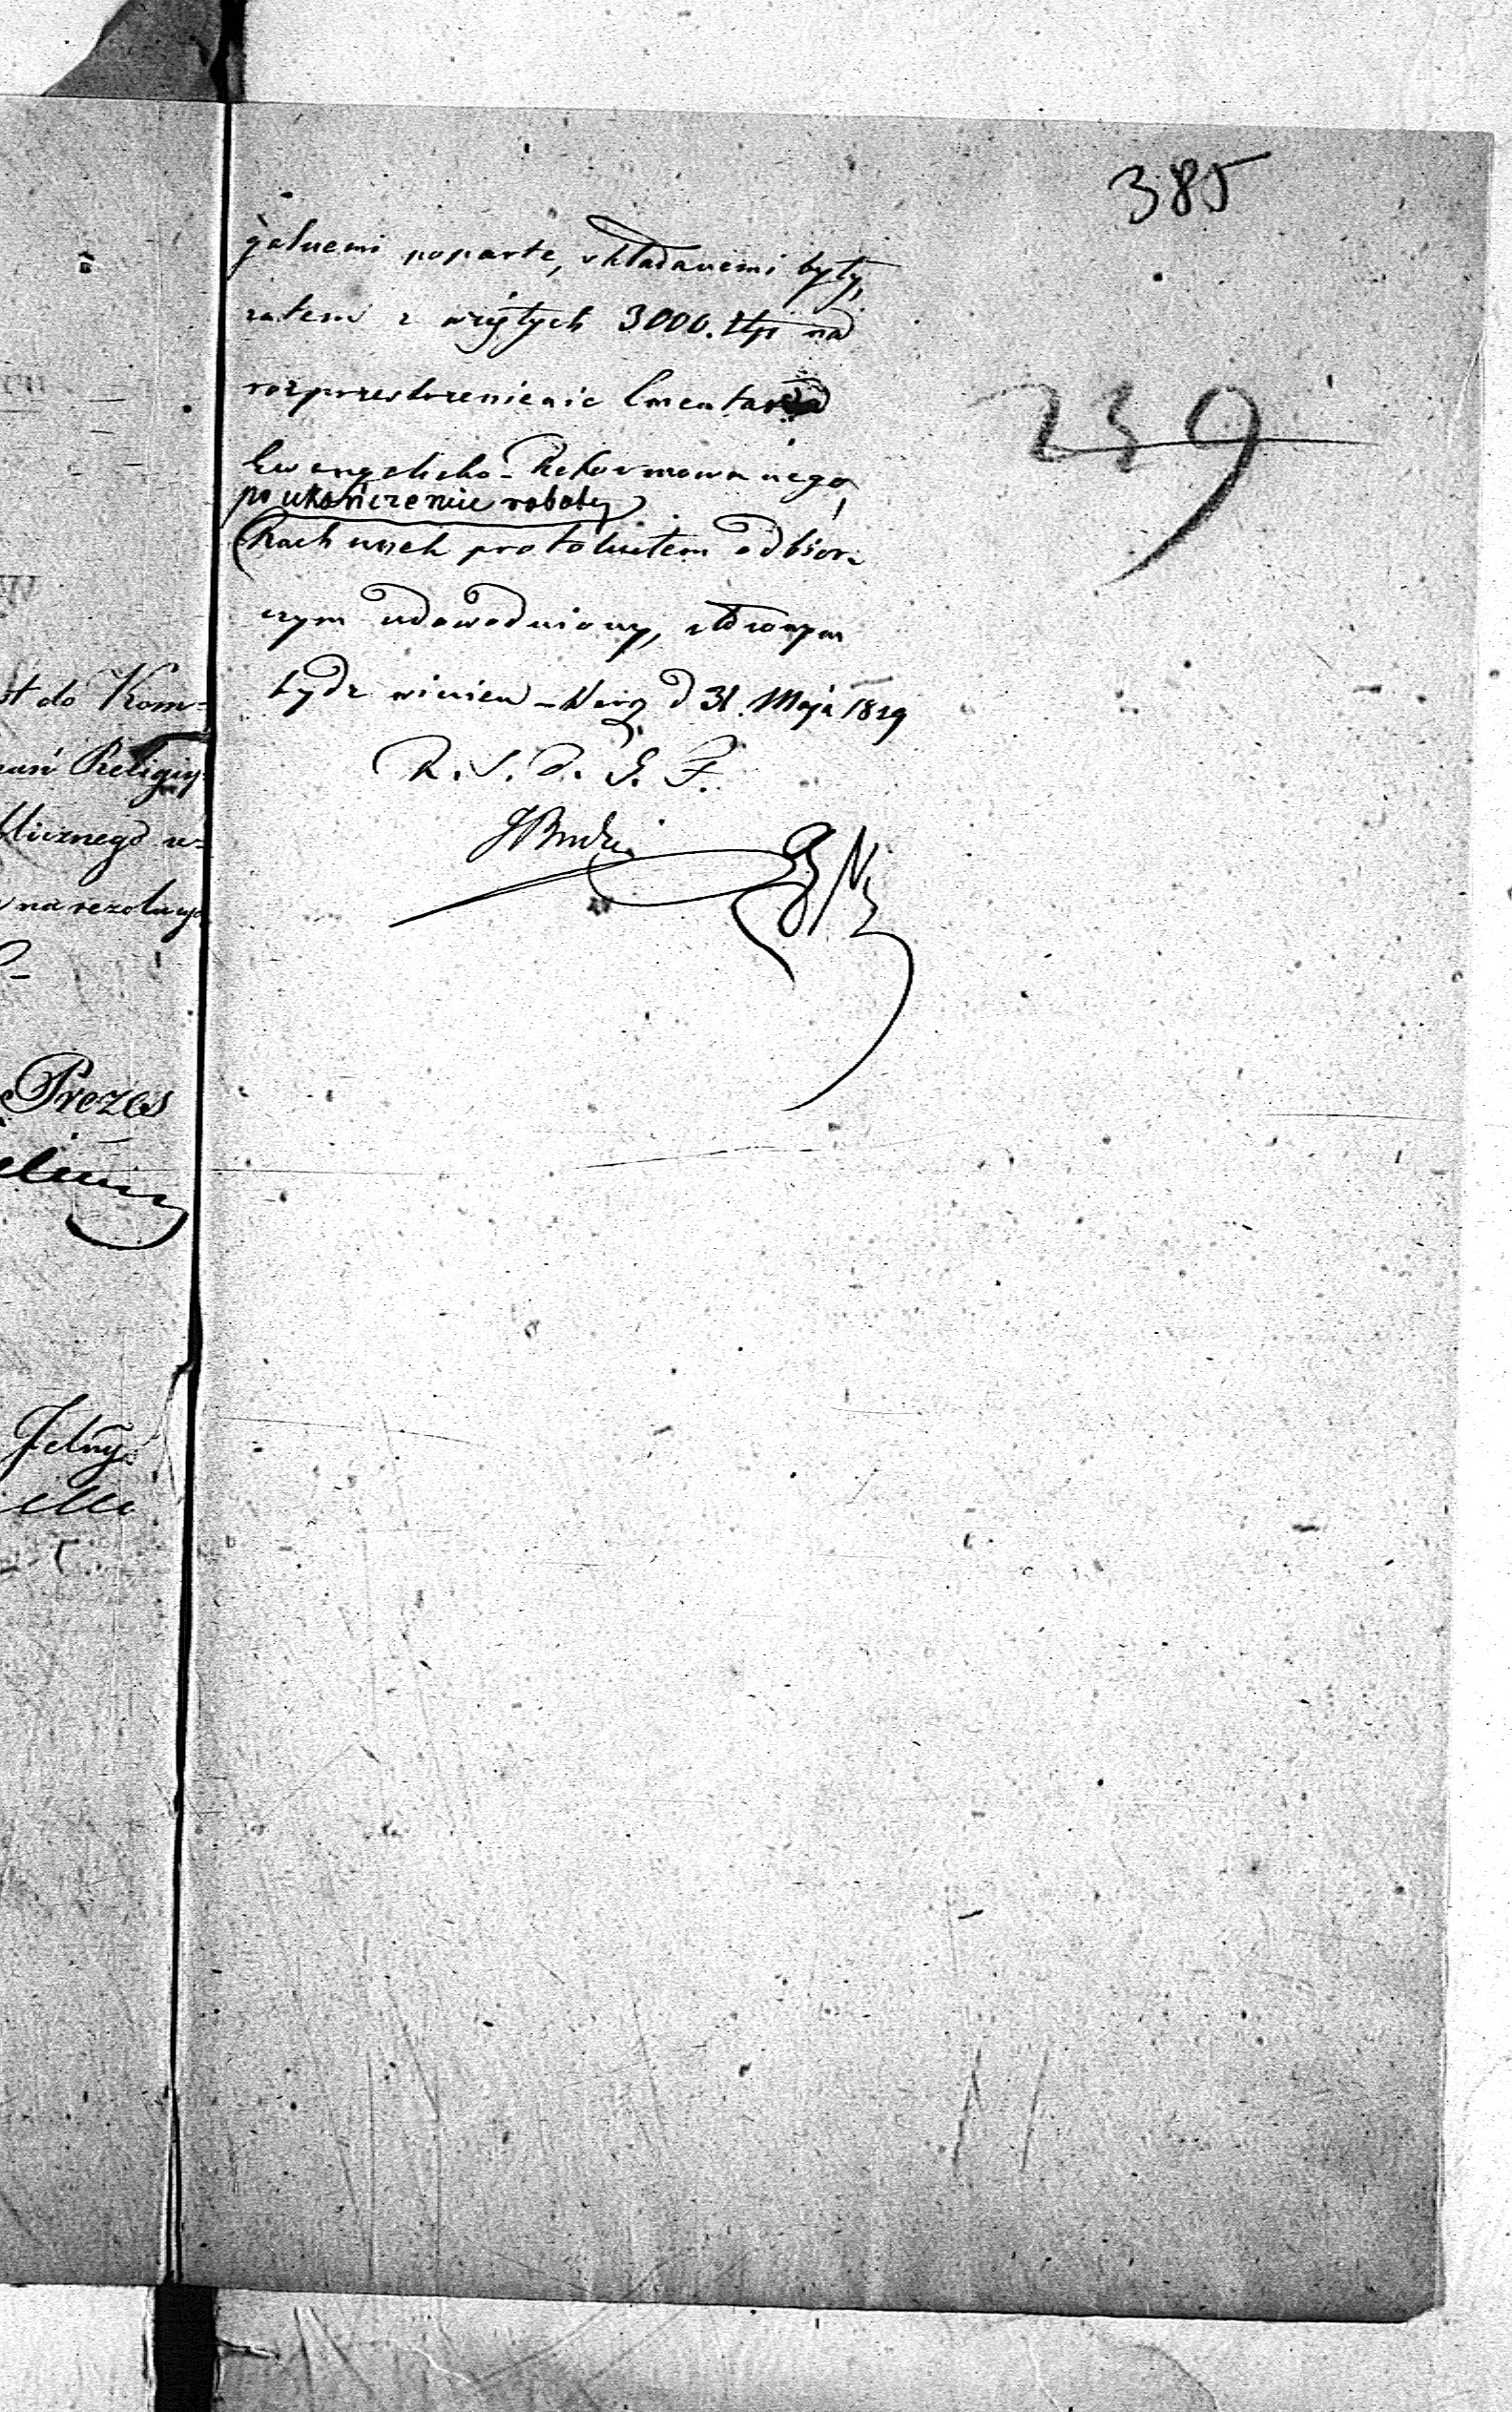 385
galnemi poparte, składanemi były,
zatem z wziętych 3000. Złp na
rozprzestrzenienie Cmentarza
239
Ewangelicko-Reformowanego,
po ukończeniu roboty
Rachunek protokułem odbior-
czym udowodniony, złożonym
bydź winien – Warz d 31. Maja 1819
K. S. d. S. P.
st do Kom=
Religiy
blicznego u=
na rezolucyą
Prezes
Jelny